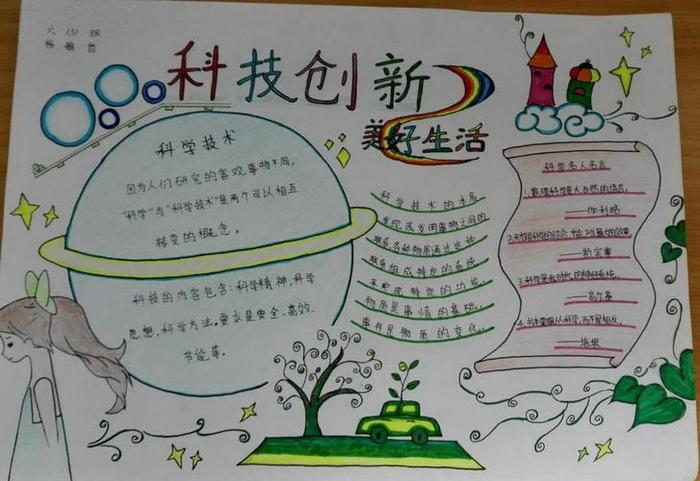 六（3）班
科技创新
美好生活
科学技术
因为人们研究的客观事物不同，
"科学"与"科学技术"是两个可以相互
转变的概念。
科技的内容包含：科学精神，科学
思想，科学方法。要求是安全、高效、
节能等。
科学技术的本质
发现或发明事物之间的
联系各种物质通过这种
联系组成特定的系统
来实现特定的功能。
物质是事情的基础，
事件是物质的变化。
科学名人名言
1.数理科学是大自然的语言。
——伽利略
——斯宾塞
——高尔基